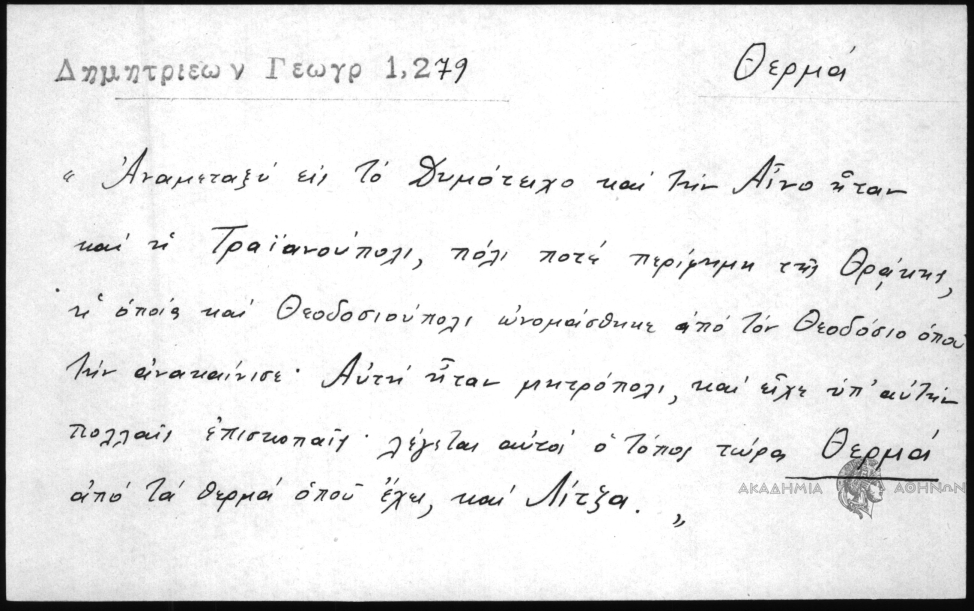 Δημητριεων Γεωγρ 1,279
Θερμά
"Ἀναμεταξύ εἰς τό Δυμότειχο καί τήν Αἶνο ἦταν
καί ἡ Τραϊανούπολι, πόλι ποτέ περίφημη τῆς Θρᾴκης,
ἡ ὁποία καί Θεοδοσιούπολι ὠνομάσθηκε ἀπό τόν Θεοδόσιο ὁπού
τήν ἀνακαίνισε· Αὐτή ἦταν μητρόπολι, καί εἶχε ὑπ' αὐτήν
πολλαῖς ἐπισκοπαῖς· λέγεται αὐτός ὁ τόπος τώρα Θερμά
ἀπό τά θερμά ὁπού ἔχει, καί Λίτζα. "
ΑΚΑΔΗΜΙΑ ΑΘΗΝΩΝ